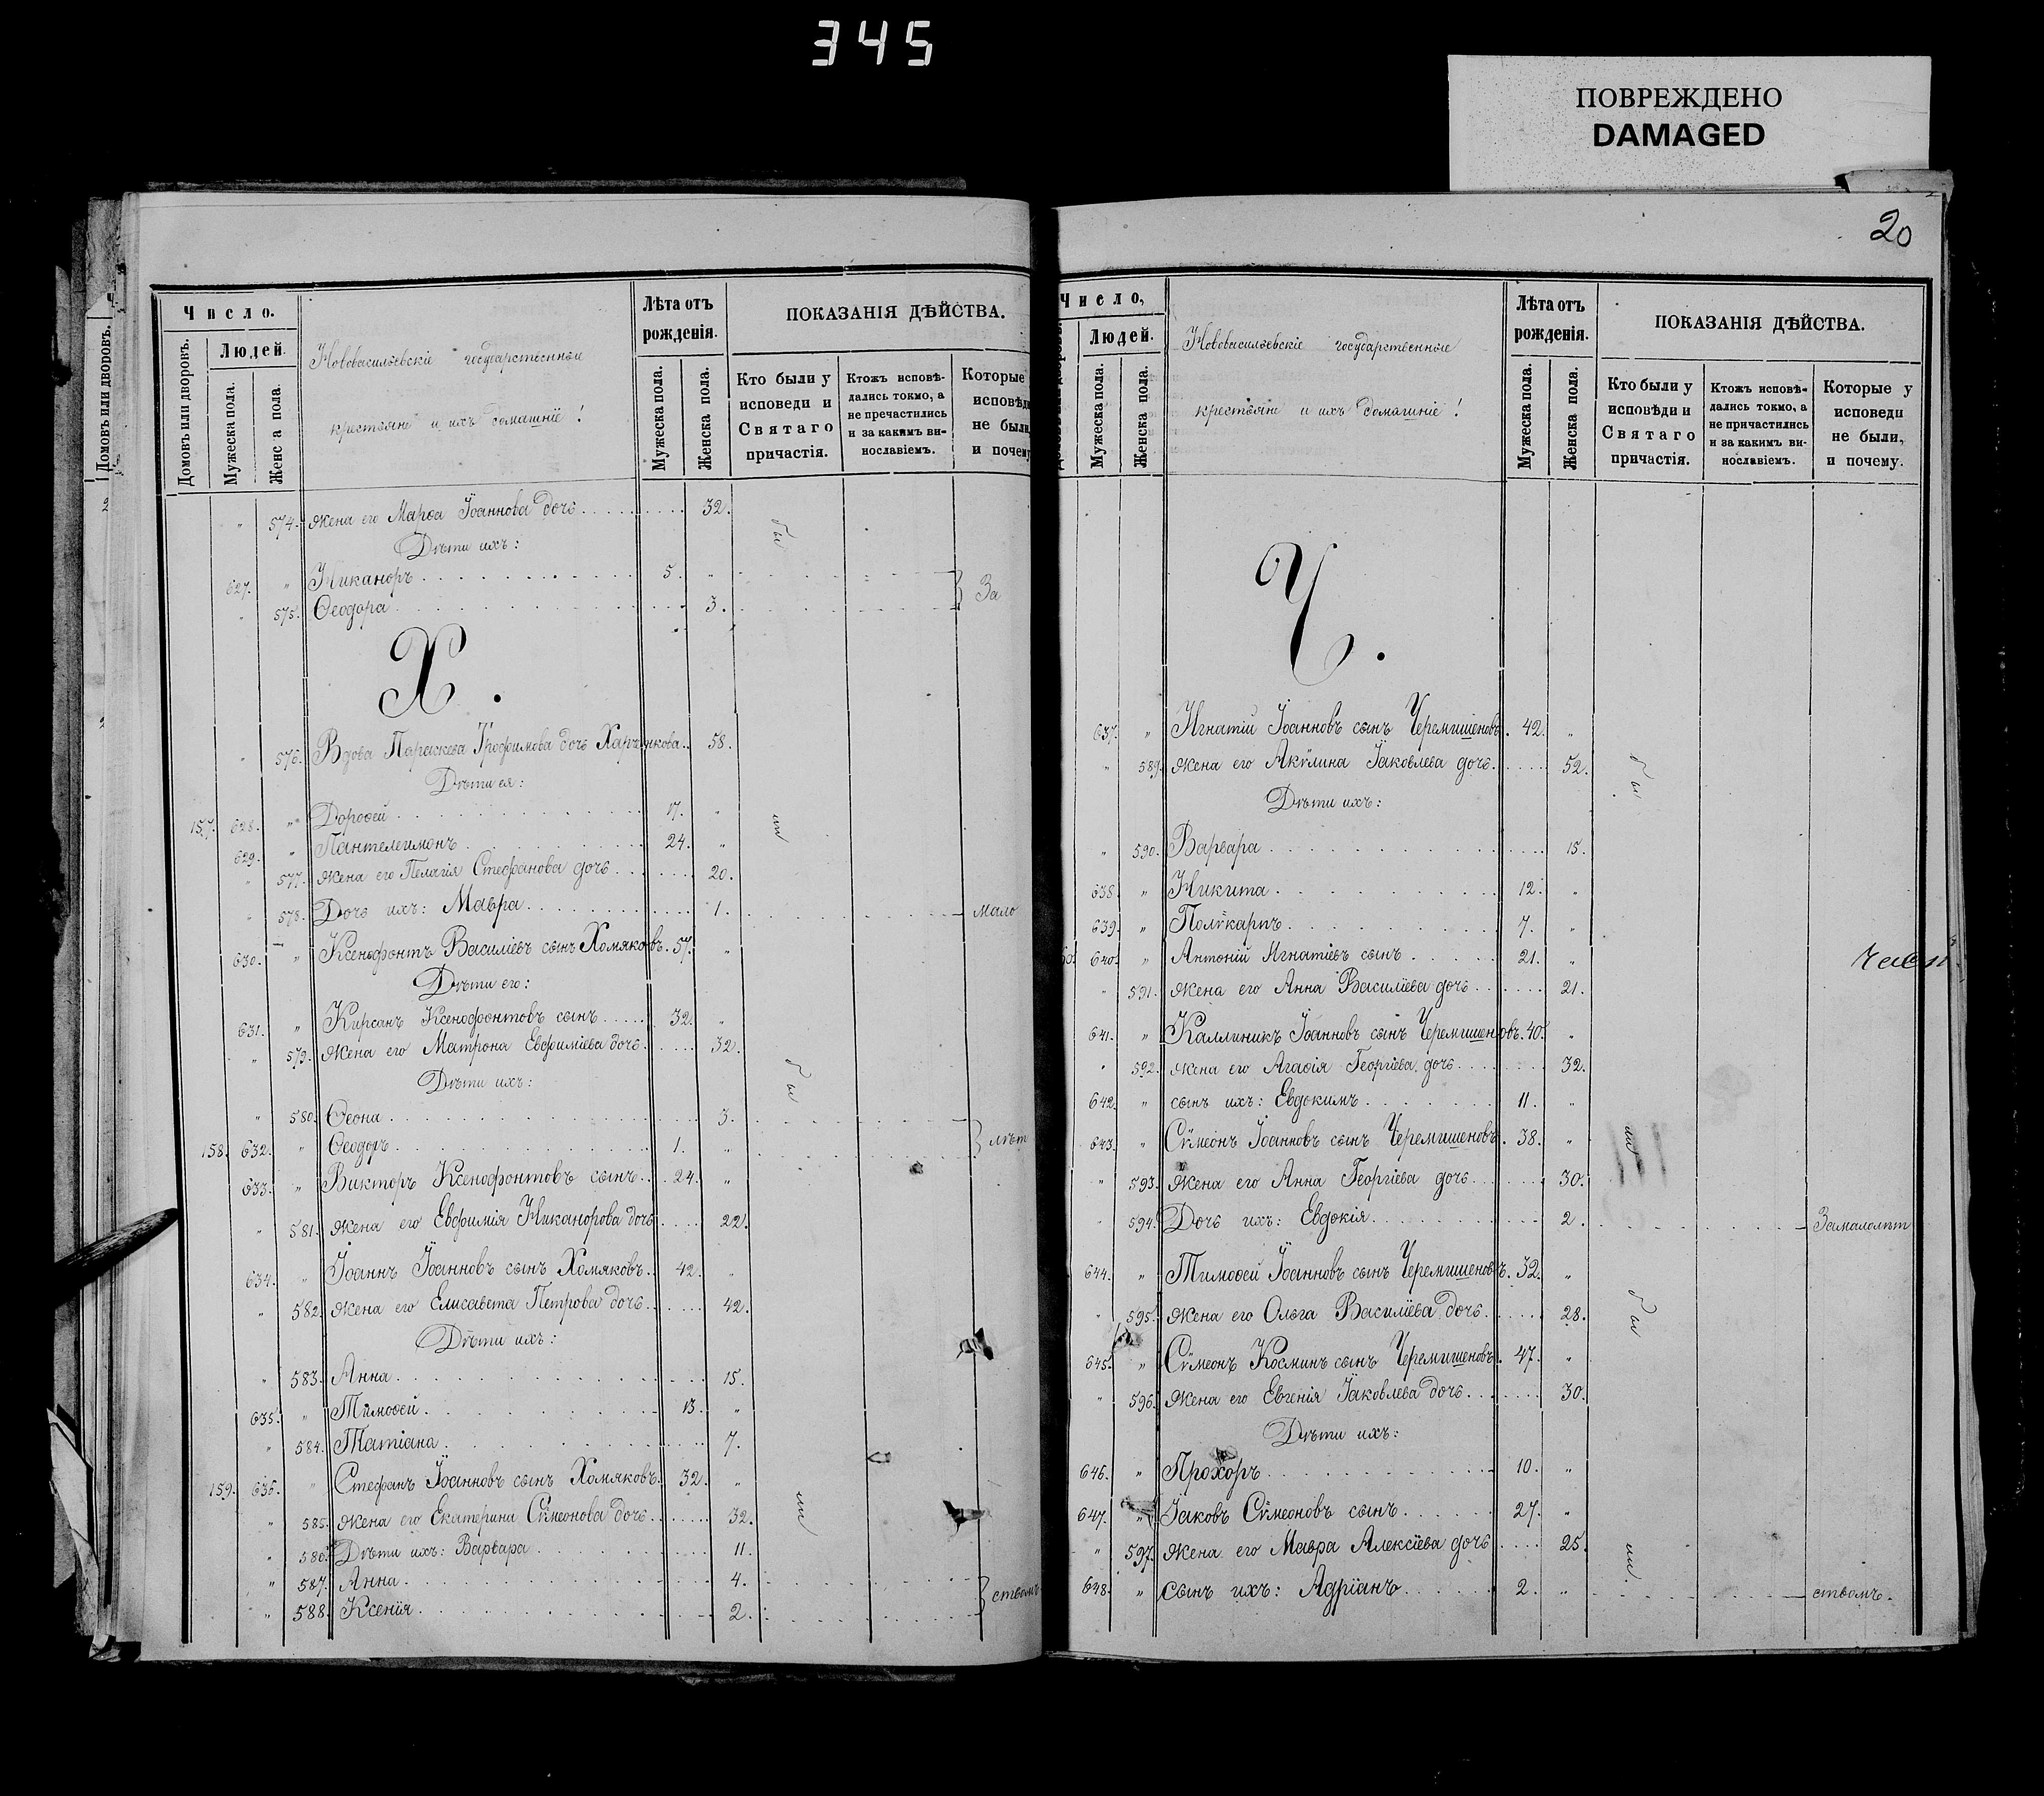 345
ПОВРЕЖДЕНО
DAMAGED
Домовъ или дворовъ.
Число.
Людей.
Домовъ или дворовъ.
Мужеска пола.
Женс а пола
Нововасильевскіе государственные
крестьяне и ихъ домашніе!
Лѣта отъ
рожденія.
Мужеска пола.
Женска пола.
ПОКАЗАНІЯ ДѢЙСТВА.
Кто были у
исповеди и
Святаго
причастія.
Ктожъ исповѣ-
дались токмо, а
не пречастились
и за какимъ ви-
нославіемъ.
Которые
исповѣди
не были,
и почему
" 574. жена его Марѳа Іоаннова дочь 32.
бы
Дѣти ихъ:
627. " Никаноръ 5. "
" 575. Ѳеодора 3. За
Х.
" 576. Вдова Параскева Трофимова дочь Харченкова 58.
Дѣти ея:
157. 628. " Дороѳей 17. "
ли
629. " Пантелеимонъ 24. "
" 577. жена его Пелагія Стефанова дочь 20.
" 578. Дочь ихъ: Мавра 1. мало
630. " Ксенофонтъ Василіевъ сынъ Хомяковъ 57. "
Дѣти его:
631. " Кирсанъ Ксенофонтовъ сынъ 32. "
" 579. жена его Матрона Евфиміева дочь 32.
бы
Дѣти ихъ:
" 580. Ѳеона 3.
158. 632. " Ѳеодоръ 1. " лѣт
633. " Викторъ Ксенофонтовъ сынъ 24. "
" 581. жена его Евфимія Никанорова дочь 22.
634. " Іоаннъ Іоанновъ сынъ Хомяковъ 42. "
" 582. жена его Елисавета Петрова дочь 42.
Дѣти ихъ:
" 583. Анна 15.
635. " Тимоѳей 13. "
" 584. Татіана 7.
159. 636. " Стефанъ Іоанновъ сынъ Хомяковъ 32. "
ли
" 585. жена его Екатерина Сѵмеонова дочь 32.
" 586. Дѣти ихъ: Варвара 11.
" 587. Анна 4.
" 588. Ксенія 2. ствомъ
20
Число,
Людей.
Мужеска пола.
Женска пола.
Нововасильевскіе государственные
крестьяне и ихъ домашніе!
Лѣта отъ
рожденія.
Мужеска пола.
Женска пола.
ПОКАЗАНІЯ ДѢЙСТВА.
Кто были у
исповѣди и
Святаго
причастія.
Ктожъ исповѣ-
дались токмо, а
не причастились
и за какимъ ви-
нославіемъ.
Которые у
исповеди
не были,
и почему.
Ч.
637. " Игнатій Іоанновъ сынъ Черемишеновъ 42. "
" 589. жена его Акѵлина Іаковлева дочь 52.
бы
Дѣти ихъ:
" 590. Варвара 15.
638. " Никита 12. "
639. " Полѵкарпъ 7. "
640. " Антоній Игнатіевъ сынъ 21. "
" 591. жена его Анна Василіева дочь 21.
641. " Каллиникъ Іоанновъ сынъ Черемишеновъ 40. "
" 592. жена его Агаѳія Георгіева дочь 32.
642. " сынъ ихъ: Евдокимъ 11. "
643. " Сѵмеонъ Іоанновъ сынъ Черемишеновъ 38. "
ли
" 593. жена его Анна Георгіева дочь 30.
" 594. Дочь ихъ: Евдокія 2. Замалолѣт
644. " Тимоѳей Іоанновъ сынъ Черемишеновъ 32. "
" 595. жена его Ольга Василіева дочь 28.
бы
645. " Сѵмеонъ Косминъ сынъ Черемишеновъ 47. "
" 596. жена его Евгенія Іаковлева дочь 30.
Дѣти ихъ:
646. " Прохоръ 10. "
647. " Іаковъ Сѵмеоновъ сынъ 27. "
" 597. жена его Мавра Алексіева дочь 25.
ли
648. " сынъ ихъ: Адріанъ 2. " ствомъ.